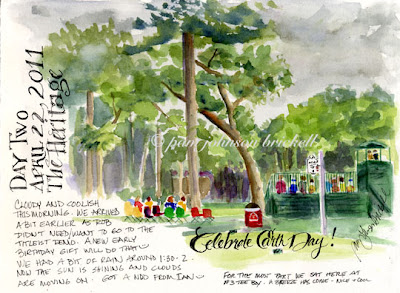 DAY TWO
APRIL 22, 2011
The Heritage
© pam johnson brickell
Celebrate Earth Day!
CLOUDY AND COOLISH
THIS MORNING. WE ARRIVED
A BIT EARLIER AS ROB
DIDN'T NEED/WANT TO GO TO THE
TITLEIST TEND. A NEW EARLY
BIRTHDAY GIFT WILL DO THAT
WE HAD A BIT OF RAIN AROUND 1:30-2.
NOW THE SUN IS SHINING AND CLOUDS
ARE MOVING ON. GOT A NOD FROM IAN
FOR THE MOST PART WE SAT HERE AT
#3 TEE BOX. A BREEZE HAS COME - NICE + COOL